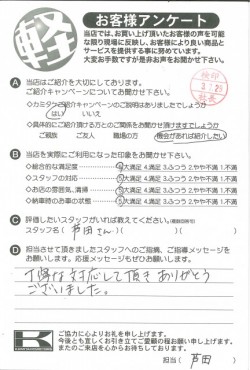 軽
お客様アンケート
当店では、お買い上げ頂いたお客様の声を可能
な限り現場に反映し、お客様により良い商品と
サービスを提供する事に努めています。
大変お手数ですが是非お声をお聞かせ下さい。
検印
社長
A 当店はご紹介を大切にしております。
ご紹介キャンペーンについてお聞かせ下さい。
◇カミタケご紹介キャンペーンのご説明はありましたでしょうか
はい いいえ
◇具体的にご紹介頂ける方とのご関係をお聞かせ頂けますでしょうか
ご親族 ご友人 職場の方 機会があれば紹介したい
B 当店を実際にご利用になった印象をお聞かせ下さい。
◇総合的な満足度 5大満足 4.満足 3.ふつう 2.やや不満 1.不満
◇スタッフの対応 5大満足 4.満足 3.ふつう 2.やや不満 1.不満
◇お店の雰囲気、清掃 5大満足 4.満足 3.ふつう 2.やや不満 1.不満
◇納車時のお車の状態 5大満足 4.満足 3.ふつう 2.やや不満 1.不満
C 評価したいスタッフがいれば教えてください。(複数回答可)
スタッフ名( 芦田さん )( )
D 担当させて頂きましたスタッフへのご指摘、ご指導メッセージを
お願いします。応援メッセージもぜひお願いします。
丁寧な対応して頂きありがとう
ございました。
K
ご協力に心よりお礼を申し上げます。
今後とも宜しくお引き立てご愛顧の程お願い申し上げます。
またのご来店を心からお待ちしております。
担当( 芦田 )